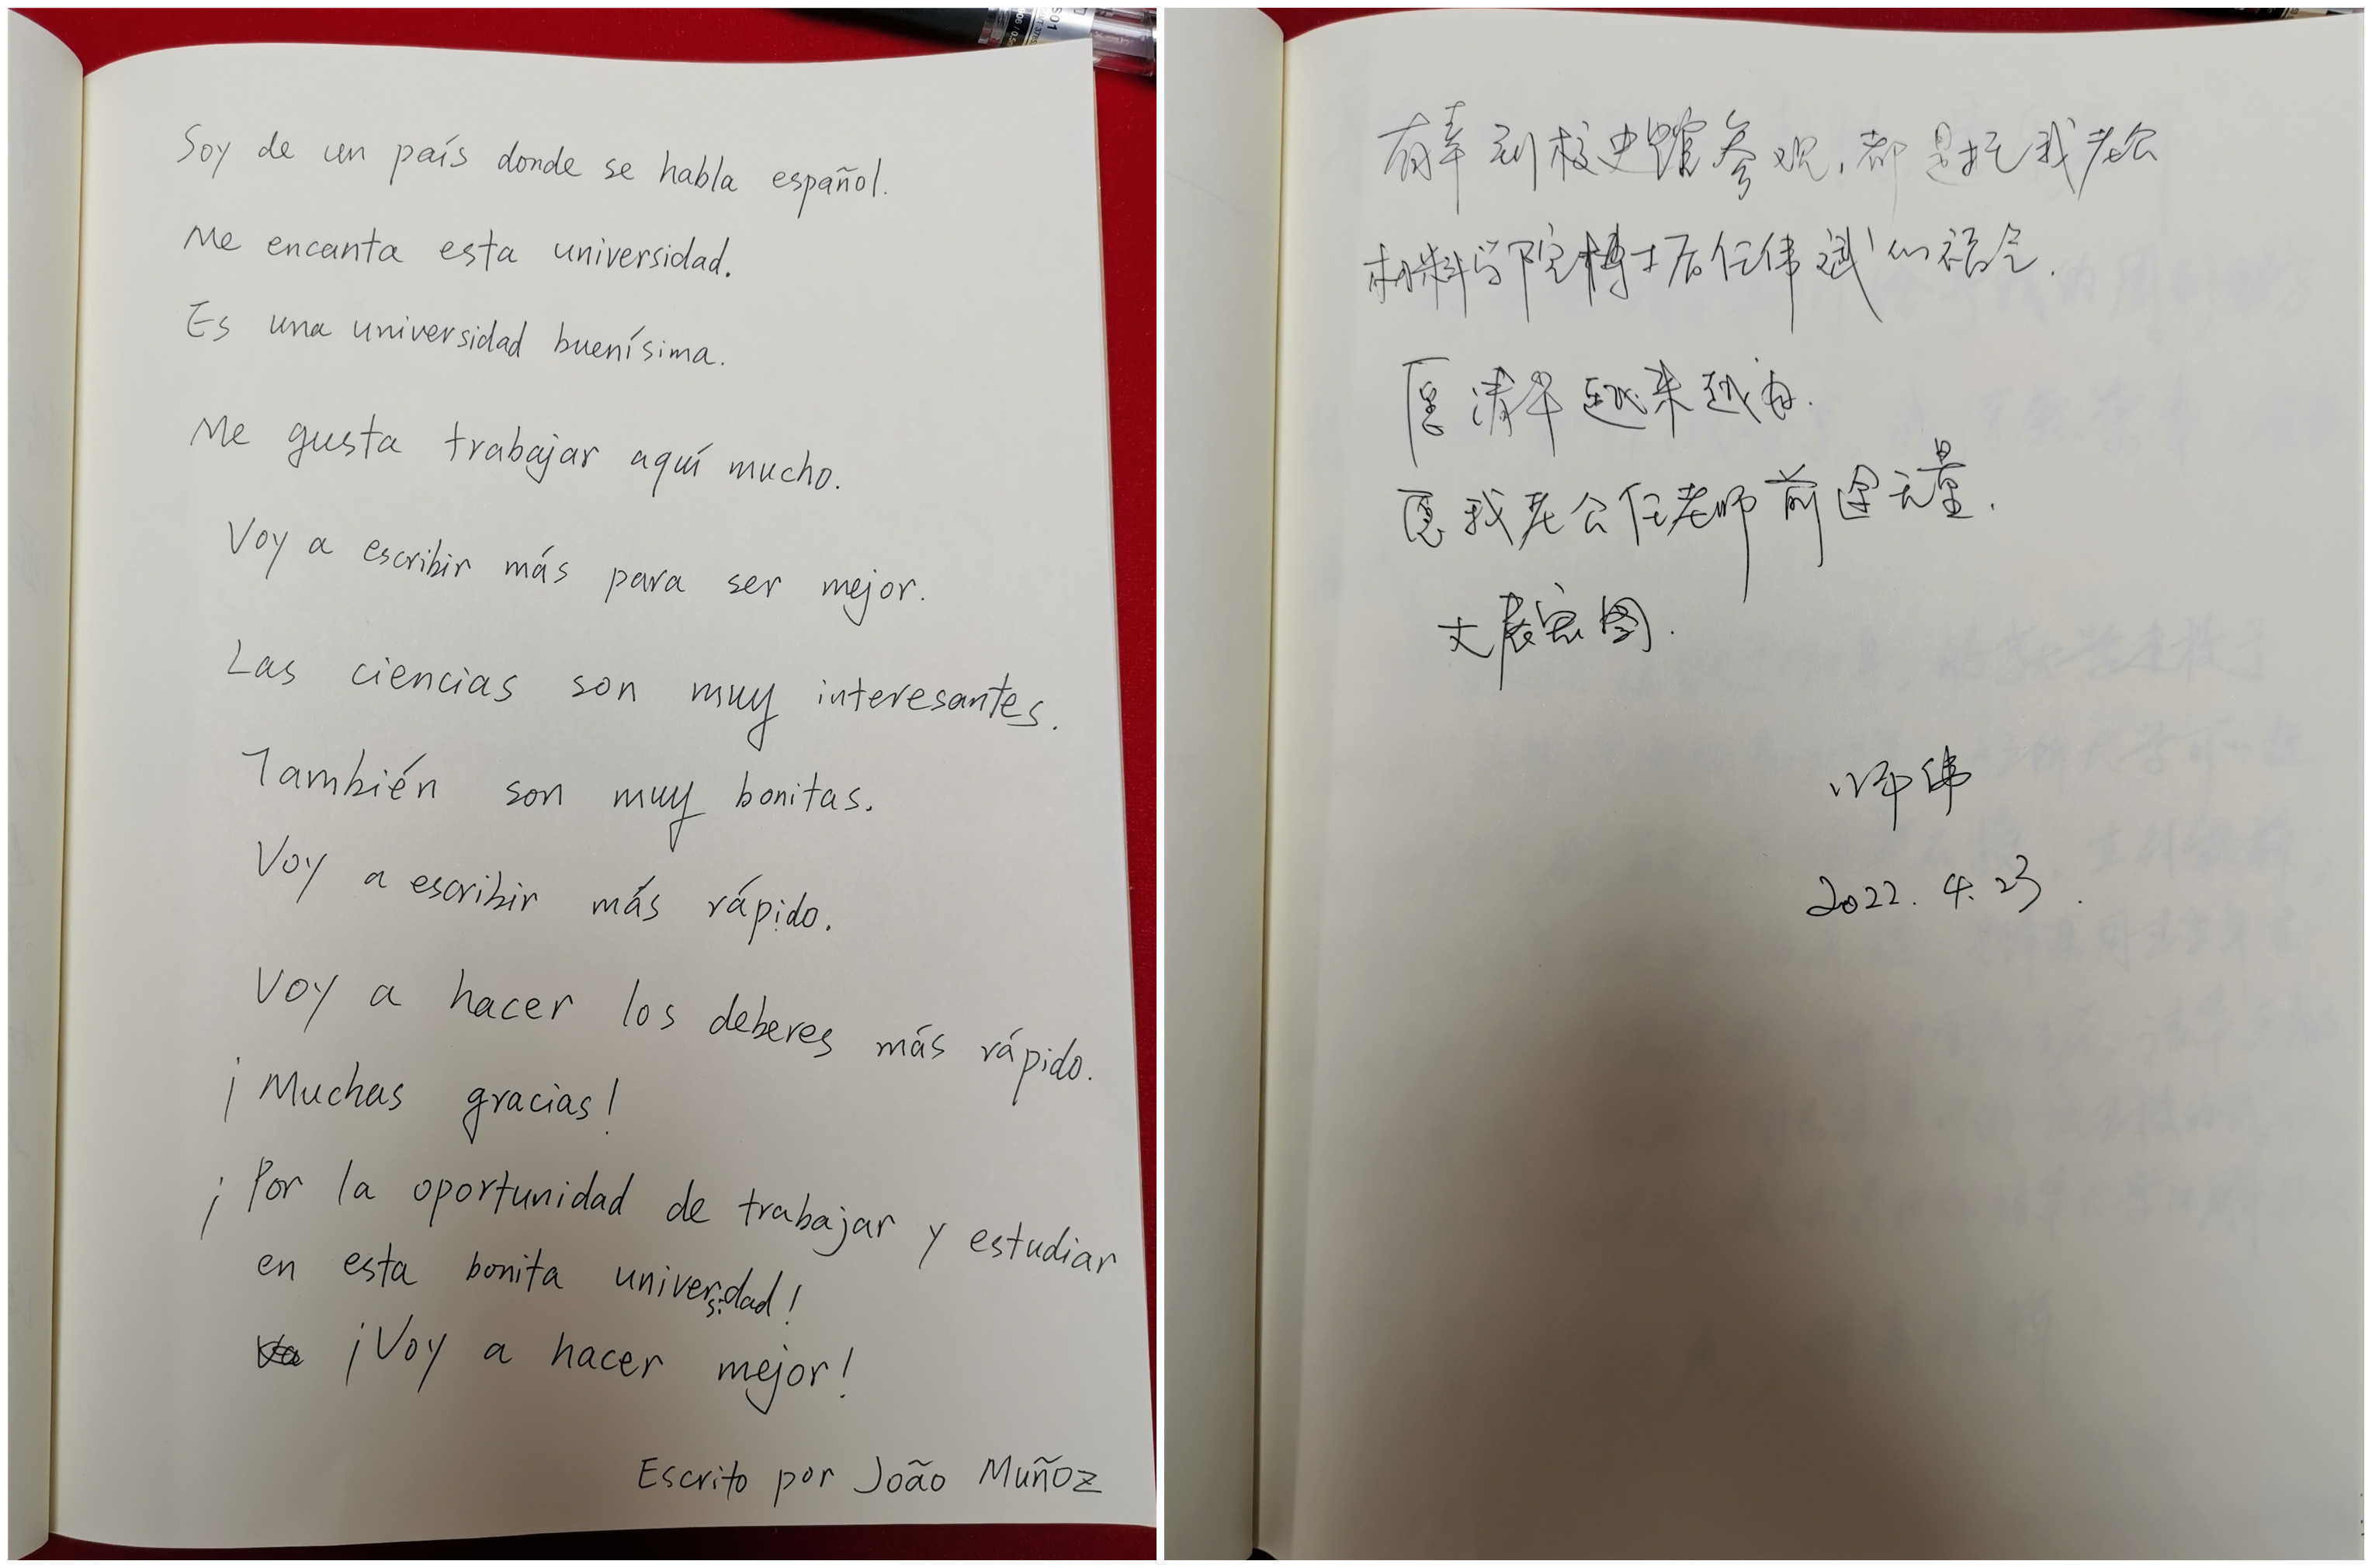 Soy de un país donde se habla español.
Me encanta esta universidad.
Es una universidad buenísima.
Me gusta trabajar aquí mucho.
Voy a escribir más para ser mejor.
Las ciencias son muy interesantes.
También son muy bonitas.
Voy a escribir más rápido.
Voy a hacer los deberes más rápido.
¡Muchas gracias!
¡Por la oportunidad de trabajar y estudiar
en esta bonita universidad!
¡Voy a hacer mejor!
Escrito por João Muñoz
有幸到校史馆参观,都是托我老公
材料学院博士后任伟斌的福气.
愿清华越来越好.
愿我老公任老师前途无量.
大展宏图.
师伟
2022.4.23.